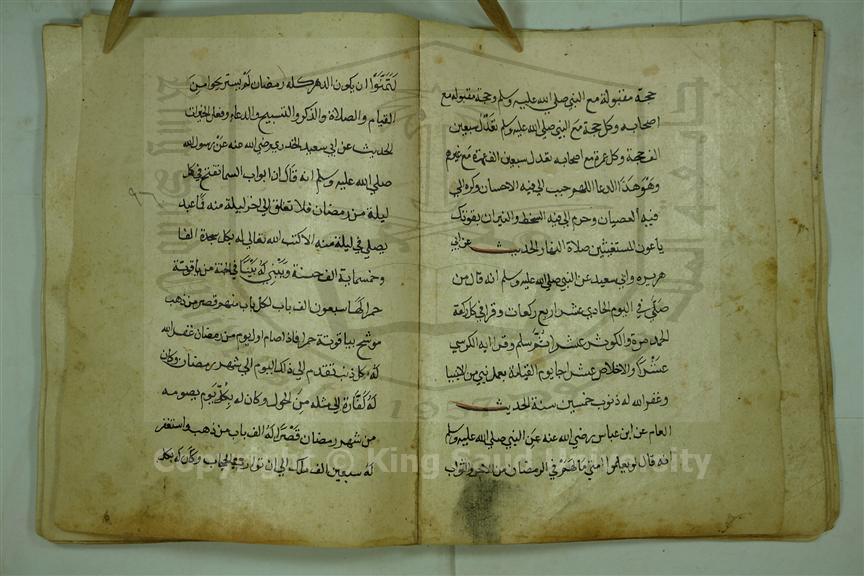 حجة مقبولة مع النبي صلي الله عليه وسلم وحجة مقبوله مع
اصحابه وكل حجة مع النبي صلي الله عليه وسلم تعدل سبعين
الف حجة وكل عمرة مع اصحابه تعدل سبعين الف عمرة مع غيرهم
وهو هذا الدعا اللهم حبب الي فيه الاحسان وكره الي
فيه العصيان وحرم الي فيه السخط والنيران بقوتك
ياعون المستغيثين صلاة النهار الحديث عن ابي
هريره وابي سعيد عن النبي صلي الله عليه وسلم انه قال من
صلي في اليوم الحادي عشر اربع ركعات وقرا في كل ركعة
الحمد مرة والكوثر عشرا ثم سلم وقرا ايه الكرسي
عشرا والاخلاص عشرا جا يوم القيامة بعمل نبي من الانبيا
وغفر الله له ذنوب خمسين سنة الحديث
العام عن ابن عباس رضي الله عنه عن النبي صلي الله عليه وسلم
انه قال لو يعلموا امتي ما لهم في الرمضان من الاجر والثواب
لتمنوا ان يكون الدهر كله رمضان لم يستريحوا من
القيام والصلاة والذكر والتسبيح والدعا وفعل الخيرات
الحديث عن ابي سعيد الخدري رضي الله عنه عن رسول الله
صلي الله عليه وسلم انه قال ان ابواب السما تفتح في كل
ليلة من رمضان فلا تغلق الي اخر ليلة منه فما عبد
يصلي في ليلة منه الا كتب الله تعالي له بكل سجدة الفا
وخمسماية الف حسنة ويبني له بيتا في الجنة من ياقوتة
حمرا لها سبعون الف باب لكل باب منهم قصر من ذهب
موشح بياقوتة حمرا فاذا صام اول يوم من رمضان غفر الله
له كل ذنب تقدم الي ذلك اليوم الي شهر رمضان وكان
له كفارة الي مثله من الحول وكان له بكل يوم يصومه
من شهر رمضان قصرا له الف باب من ذهب واستغفر
له سبعين الف ملك الي ان توارت الحجاب وكان له بكل
Copyright © King Saud University